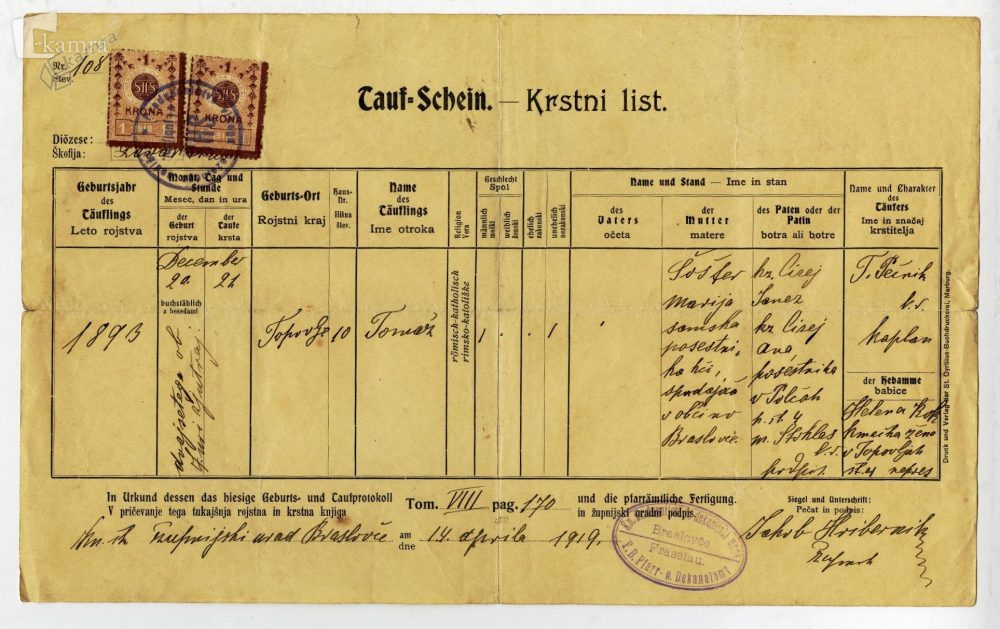 kamra
Nr.
Štev. 108
1 1
SHS SHS
KRONA KRONA
Tauf-Schein. — Krstni list.
Diözese:
Škofija:
Geburtsjahr
des
Täuflings
Leto rojstva
Monat, Tag und
Stunde
Mesec, dan in ura
der
Geburt
rojstva
der
Taufe
krsta
Geburts-Ort
Rojstni kraj
Haus-
Nr.
Hišna
štev.
Name
des
Täuflings
Ime otroka
Religion
Vera
Geschlecht
Spol
männlich
moški
weiblich
ženski
ehelich
zakonski
unehelich
nezakonski
Name und Stand — Ime in stan
des
Vaters
očeta
der
Mutter
matere
des Paten oder der
Patin
botra ali botre
Name und Charakter
des
Täufers
Ime in značaj
krstitelja
1893
December
20. 21
buchstäblich
z besedami
dvajsetega ob
zjutraj
Topovlje
10
Tomaž
römisch-katholisch
rimsko-katoliške
1
1
Šošter
Marija
samska
posestni-
ka hči,
spadajoča
v občino
Braslovče
Cizej
Janez
Cizej
Ana,
posestnika
v Polčah
p. št. 4
podpot.
T. Pečnik
l. r.
kaplan
der Hebamme
babice
Helena
kmečka žena
v Topovljah
Druck und Verlag der St. Cyrillus-Buchdruckerei, Marburg.
In Urkund dessen das hiesige Geburts- und Taufprotokoll
V pričevanje tega tukajšnja rojstna in krstna knjiga
Tom. VIII pag. 170
und die pfarrämtliche Fertigung.
in župnijski uradni podpis.
Siegel und Unterschrift:
Pečat in podpis:
Župnijski urad Braslovče
am
dne
14. aprila 1919.
Braslovče
Frasslau.
F. B. Pfarr- u. Dekanalamt
Jakob Hribernik
župnik